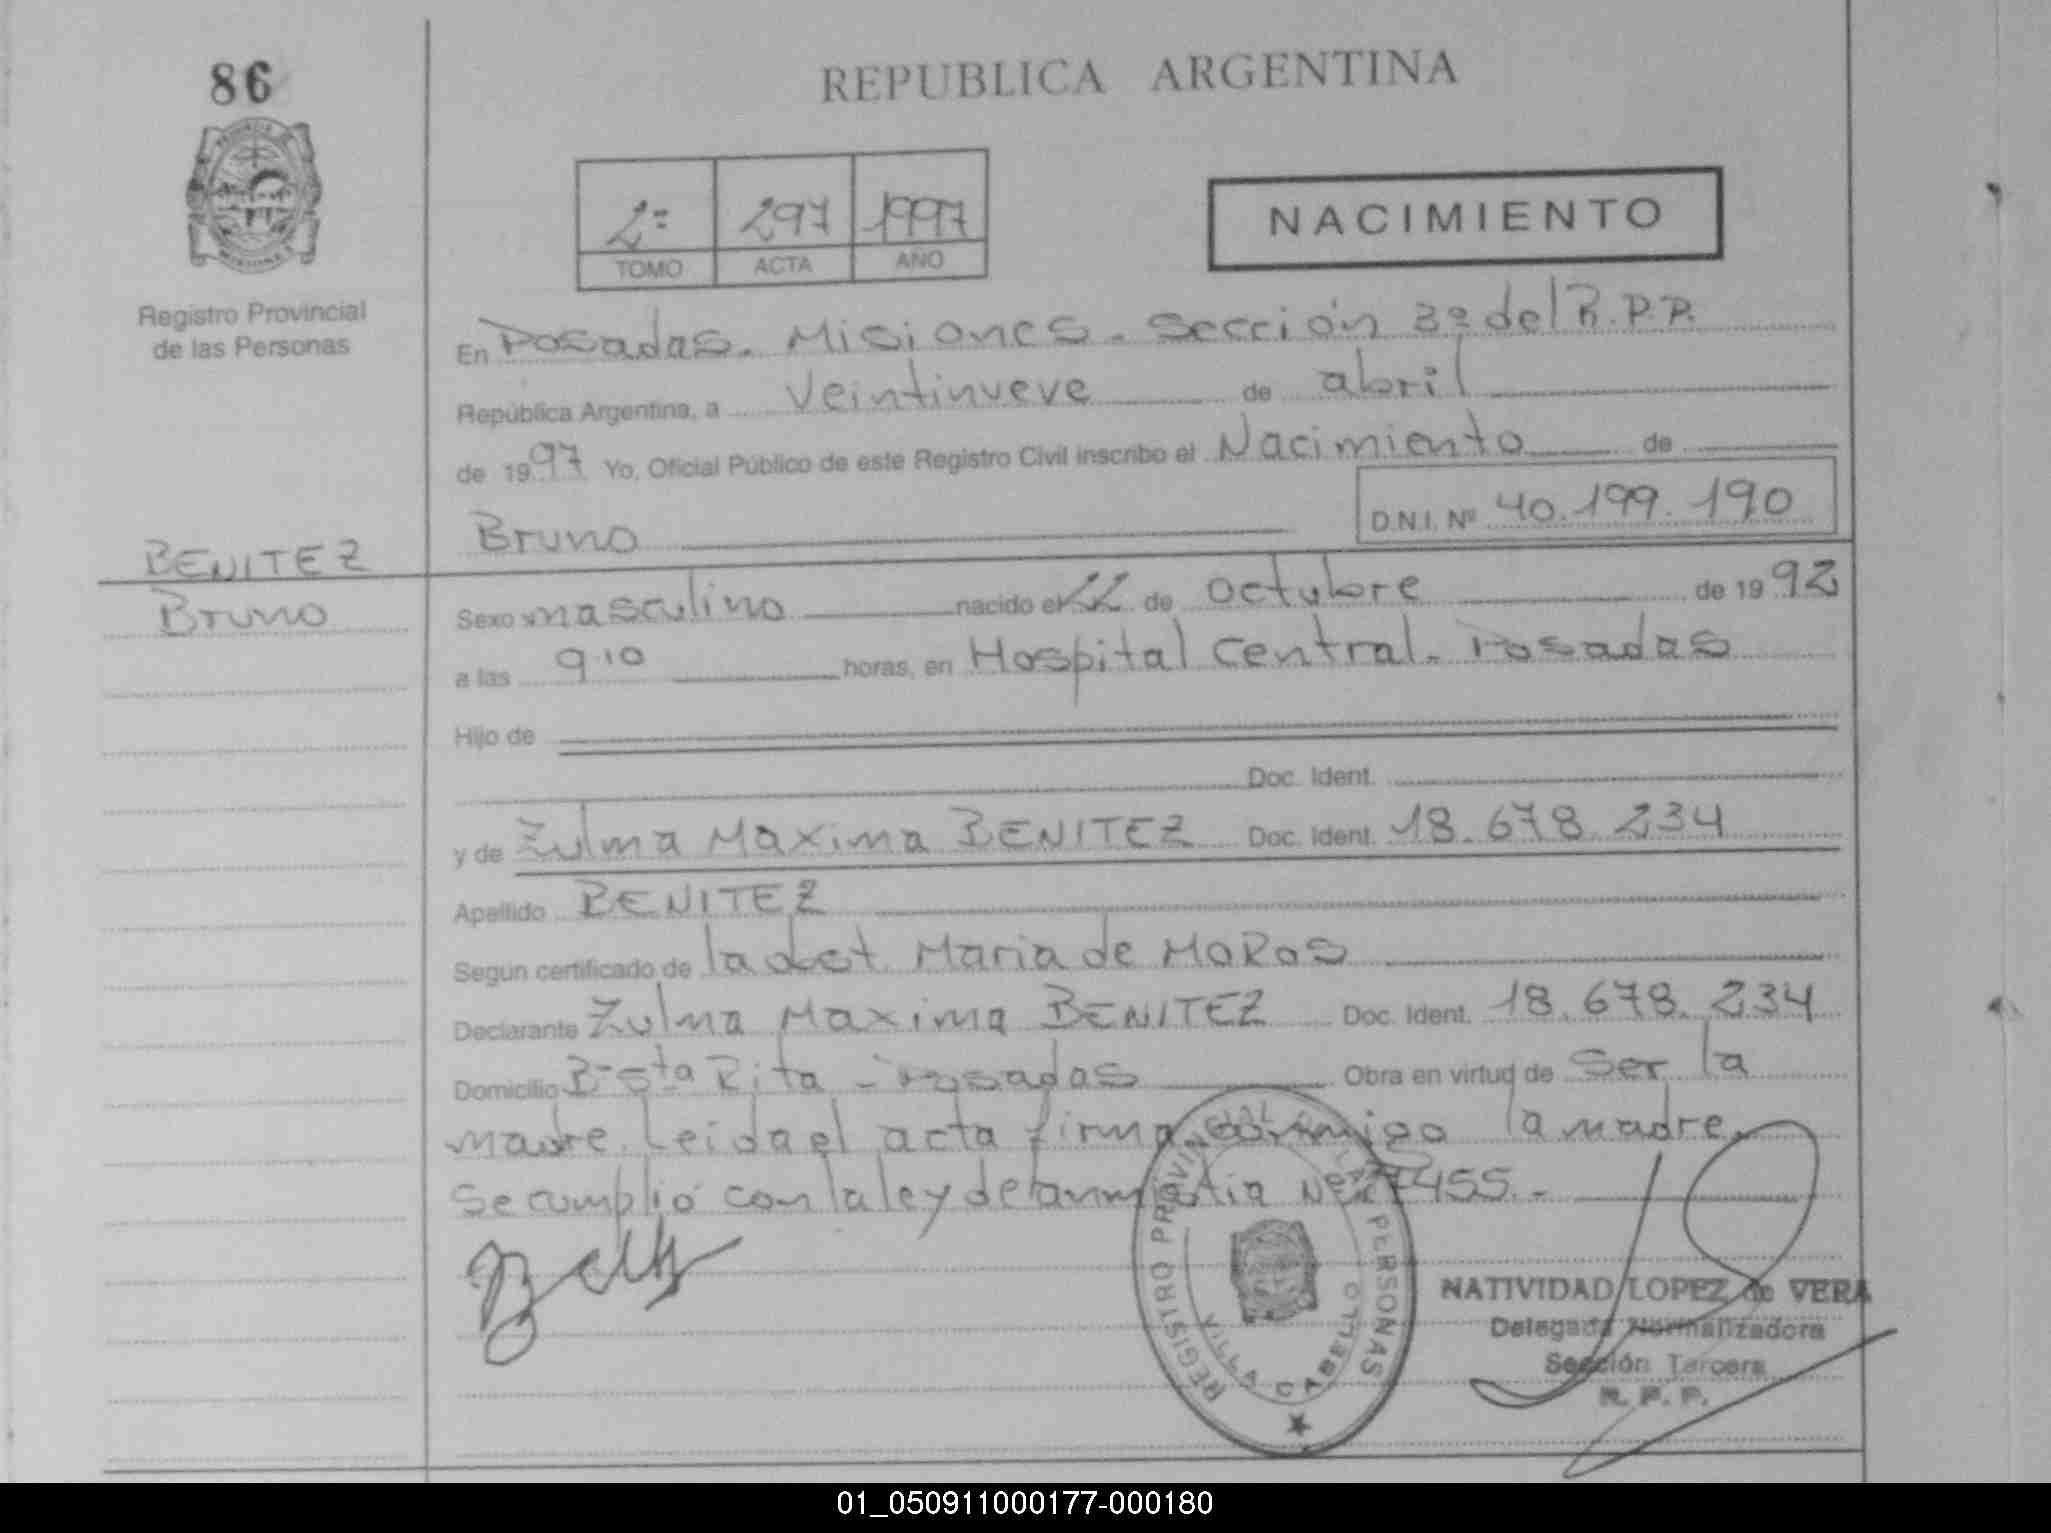 86
REPUBLICA ARGENTINA
2º 297 1997
TOMO ACTA AÑO
NACIMIENTO
Registro Provincial
de las Personas
En Posadas. Misiones. Sección 3º del R.P.P.
República Argentina, a veintinueve de abril
de 1997 Yo, Oficial Público de este Registro Civil inscribo el Nacimiento de
Bruno D.N.I. Nº 40.199.190
BENITEZ
Bruno
Sexo masculino nacido el 22 de octubre de 1992
a las 9.10 horas, en Hospital Central. Posadas
Hijo de
Doc. Ident.
y de Zulma Maxima BENITEZ Doc. Ident. 18.678.234
Apellido BENITEZ
Según certificado de la obst. Maria de MOROS
Declarante Zulma Maxima BENITEZ Doc. Ident. 18.678.234
Domicilio Bº Sta Rita - Posadas Obra en virtud de ser la
madre. Leida el acta firma conmigo la madre.
Se cumplió con la ley de amnistia Nº 455.-
REGISTRO PROVINCIAL DE LAS PERSONAS
VILLA CABELLO
NATIVIDAD LOPEZ de VERA
Delegada Normalizadora
Sección Tercera
R. P. P.
01_050911000177-000180